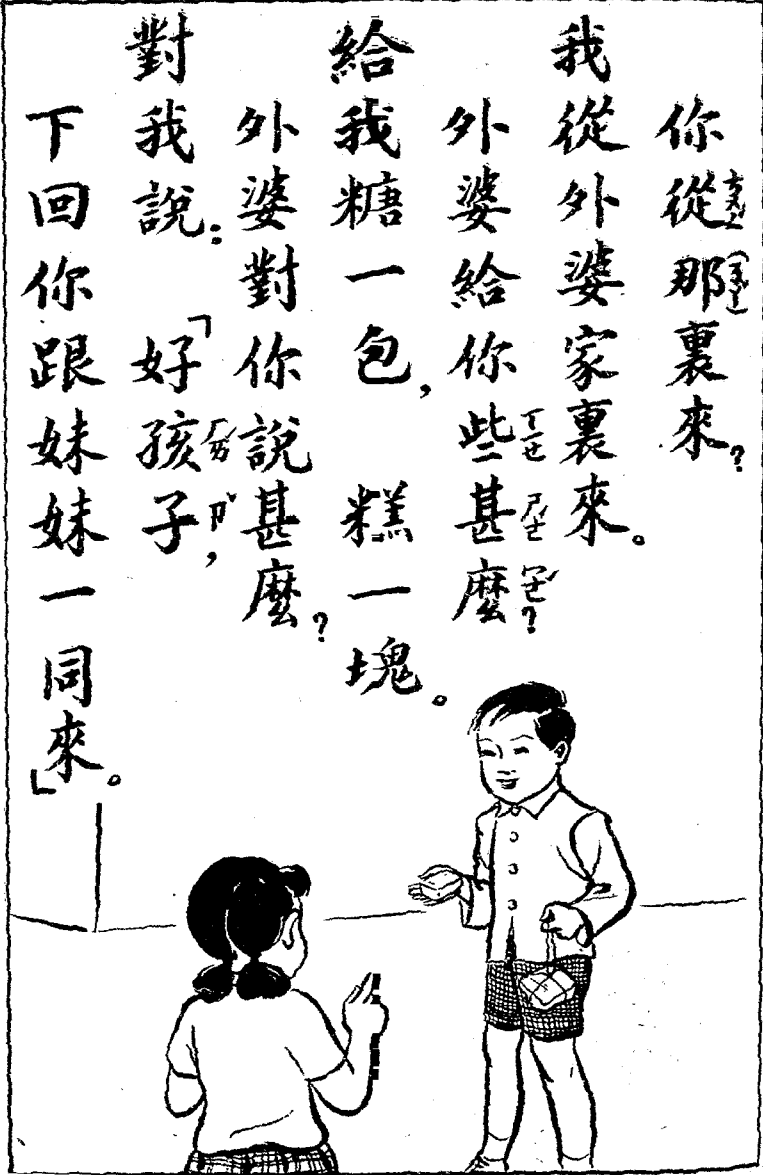 你從那裏來?
我從外婆家裏來。
外婆給你些甚麼?
給我糖一包,糕一塊。
外婆對你說甚麼?
對我說:「好孩子,
下回你跟妹妹一同來。」